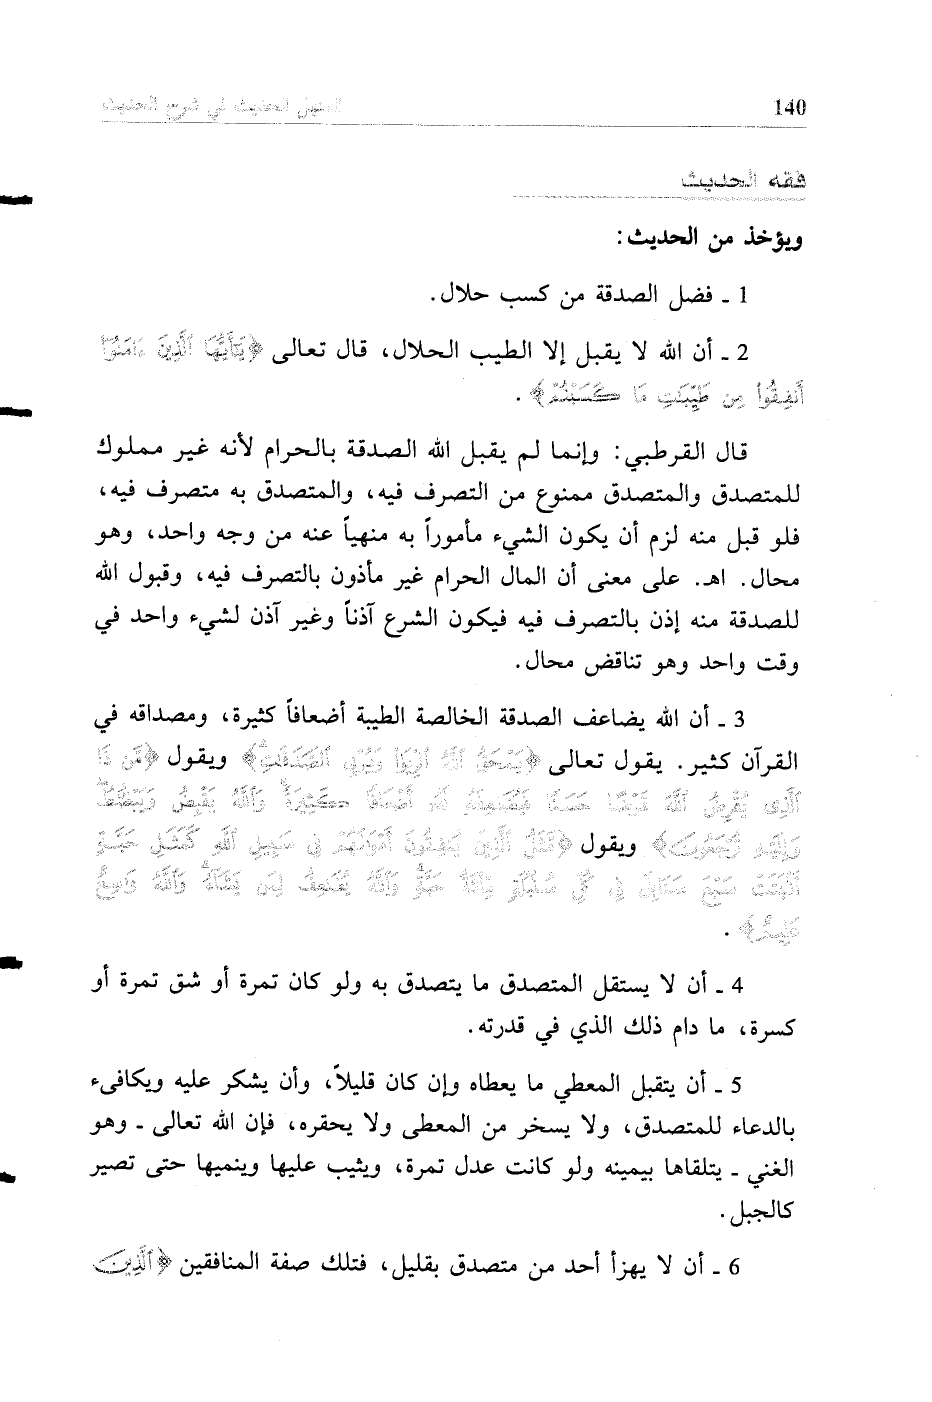 140
المنهل الحديث في شرح الحديث
فقه الحديث
ويؤخذ من الحديث:
1 ـ فضل الصدقة من كسب حلال.
2 ـ أن الله لا يقبل إلا الطيب الحلال، قال تعالى ﴿يَٰٓأَيُّهَا ٱلَّذِينَ ءَامَنُوٓا۟
أَنفِقُوا۟ مِن طَيِّبَٰتِ مَا كَسَبْتُمْ﴾.
قال القرطبي: وإنما لم يقبل الله الصدقة بالحرام لأنه غير مملوك
للمتصدق والمتصدق ممنوع من التصرف فيه، والمتصدق به متصرف فيه،
فلو قبل منه لزم أن يكون الشيء مأموراً به منهياً عنه من وجه واحد، وهو
محال. اهـ. على معنى أن المال الحرام غير مأذون بالتصرف فيه، وقبول الله
للصدقة منه إذن بالتصرف فيه فيكون الشرع آذناً وغير آذن لشيء واحد في
وقت واحد وهو تناقض محال.
3 ـ أن الله يضاعف الصدقة الخالصة الطيبة أضعافاً كثيرة، ومصداقه في
القرآن كثير. يقول تعالى ﴿يَمْحَقُ ٱللَّهُ ٱلرِّبَوٰا۟ وَيُرْبِى ٱلصَّدَقَٰتِ﴾ ويقول ﴿مَّن ذَا
ٱلَّذِى يُقْرِضُ ٱللَّهَ قَرْضًا حَسَنًا فَيُضَٰعِفَهُۥ لَهُۥٓ أَضْعَافًا كَثِيرَةً وَٱللَّهُ يَقْبِضُ وَيَبْصُۜطُ
وَإِلَيْهِ تُرْجَعُونَ﴾ ويقول ﴿مَّثَلُ ٱلَّذِينَ يُنفِقُونَ أَمْوَٰلَهُمْ فِى سَبِيلِ ٱللَّهِ كَمَثَلِ حَبَّةٍ
أَنۢبَتَتْ سَبْعَ سَنَابِلَ فِى كُلِّ سُنۢبُلَةٍ مِّا۟ئَةُ حَبَّةٍ وَٱللَّهُ يُضَٰعِفُ لِمَن يَشَآءُ وَٱللَّهُ وَٰسِعٌ
عَلِيمٌ﴾.
4 ـ أن لا يستقل المتصدق ما يتصدق به ولو كان تمرة أو شق تمرة أو
كسرة، ما دام ذلك الذي في قدرته.
5 ـ أن يتقبل المعطي ما يعطاه وإن كان قليلاً، وأن يشكر عليه ويكافىء
بالدعاء للمتصدق، ولا يسخر من المعطى ولا يحقره، فإن الله تعالى ـ وهو
الغني ـ يتلقاها بيمينه ولو كانت عدل تمرة، ويثيب عليها وينميها حتى تصير
كالجبل.
6 ـ أن لا يهزأ أحد من متصدق بقليل، فتلك صفة المنافقين ﴿ٱلَّذِينَ